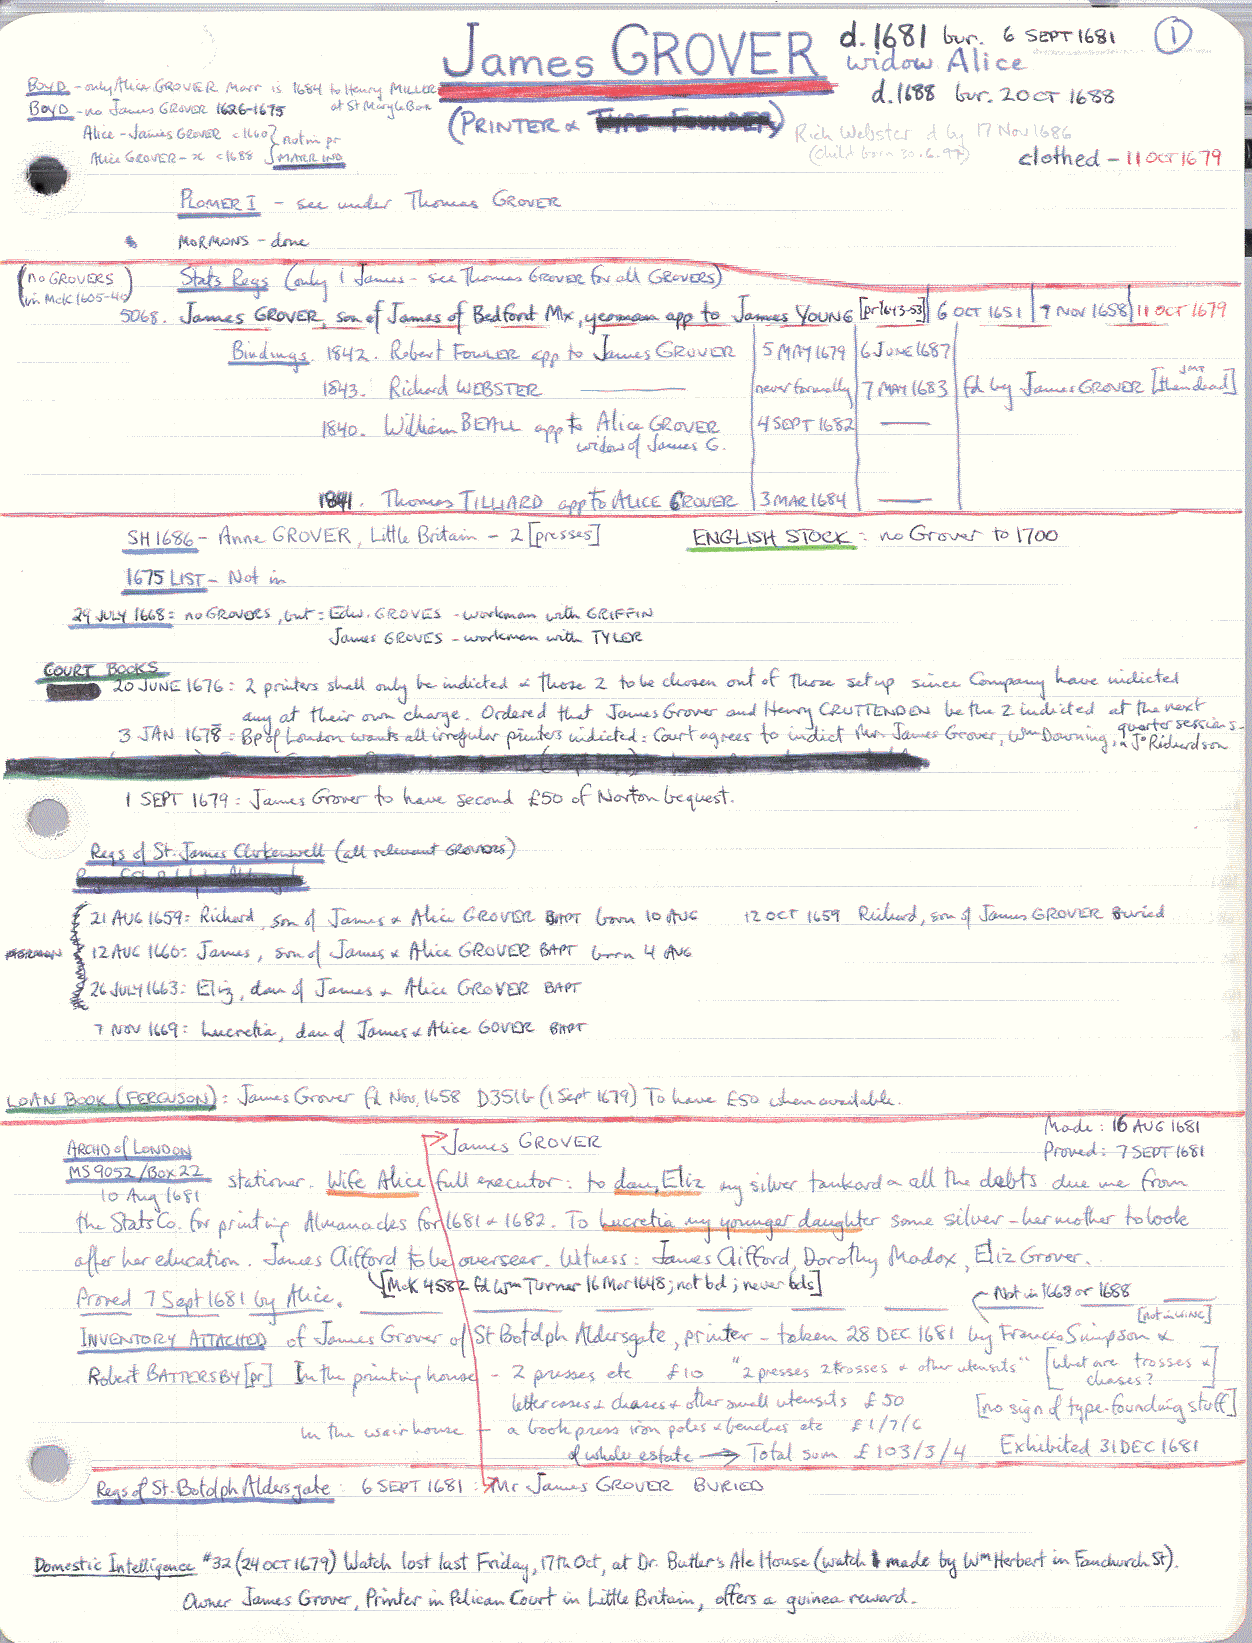 James GROVER d. 1681 bur. 6 SEPT 1681 ①
widow Alice
d. 1688 bur. 20 OCT 1688
BOYD - only Alice GROVER Marr is 1684 to Henry MILLER
at St Mary le Bow
BOYD - no James GROVER 1626-1675
(PRINTER & TYPE FOUNDER)
Alice - James GROVER c1660 } not in pr
Alice GROVER - x c1688 } MARR IND
Rich Webster d by 17 Nov 1686
(child born 30.6.97)
clothed - 11 OCT 1679
PLOMER I - see under Thomas GROVER
MORMONS - done
(no GROVERS
in McK 1605-40)
Stats Regs (only 1 James - see Thomas GROVER for all GROVERS)
5068. James GROVER, son of James of Bedford Mx, yeoman app to James YOUNG [pr 1643-53] 6 OCT 1651 | 9 NOV 1658 | 11 OCT 1679
Bindings. 1842. Robert FOWLER app to James GROVER 5 MAY 1679 6 JUNE 1687
1843. Richard WEBSTER ——— never formally 7 MAY 1683 fd by James GROVER [then dead]
1840. William BEALL app to Alice GROVER 4 SEPT 1682 —
widow of James G.
1841. Thomas TILLIARD app to ALICE GROVER 3 MAR 1684 —
SH 1686 - Anne GROVER, Little Britain - 2 [presses] ENGLISH STOCK: no Grover to 1700
1675 LIST - Not in
29 JULY 1668: no GROVERS, but: Edw. GROVES - workman with GRIFFIN
James GROVES - workman with TYLER
COURT BOOKS
20 JUNE 1676: 2 printers shall only be indicted & those 2 to be chosen out of those set up since Company have indicted
any at their own charge. Ordered that James Grover and Henry CRUTTENDEN be the 2 indicted at the next
quarter sessions.
3 JAN 1678: Bp of London wants all irregular printers indicted: Court agrees to indict Mr James Grover, Wm Downing, & Jo Richardson
1 SEPT 1679: James Grover to have second £50 of Norton bequest.
Regs of St. James Clerkenwell (all relevant GROVERS)
21 AUG 1659: Richard, son of James & Alice GROVER BAPT born 10 AUG 12 OCT 1659 Richard, son of James GROVER Buried
12 AUG 1660: James, son of James & Alice GROVER BAPT born 4 AUG
26 JULY 1663: Eliz, dau of James & Alice GROVER BAPT
7 NOV 1669: Lucretia, dau of James & Alice GOVER BAPT
LOAN BOOK (FERGUSON): James Grover fd Nov, 1658 D3516 (1 Sept 1679) To have £50 when available.
Made: 16 AUG 1681
James GROVER
ARCHD of LONDON
Proved: 7 SEPT 1681
MS 9052/Box 22
10 Aug 1681
stationer. Wife Alice full executor: to dau, Eliz my silver tankard & all the debts due me from
the Stats Co. for printing Almanackes for 1681 & 1682. To Lucretia my younger daughter some silver - her mother to look
after her education. James Clifford to be overseer. Witness: James Clifford, Dorothy Madox, Eliz Grover.
[McK 4582 fd Wm Turner 16 Mar 1648; not bd; never bds]
Proved 7 Sept 1681 by Alice.
Not in 1668 or 1688
[not in WING]
INVENTORY ATTACHED of James Grover of St Botolph Aldersgate, printer - taken 28 DEC 1681 by Francis Simpson &
Robert BATTERSBY [pr] In the printing house - 2 presses etc £10 "2 presses 2 trosses & other utensits" [what are trosses &
chases?]
letter cases & chases & other small utensits £50 [no sign of type-founding stuff]
In the wairhouse - a book press iron poles & benches etc £1/7/6
of whole estate → Total sum £103/3/4 Exhibited 31 DEC 1681
Regs of St. Botolph Aldersgate: 6 SEPT 1681: Mr James GROVER BURIED
Domestic Intelligence #32 (24 OCT 1679) Watch lost last Friday, 17th Oct, at Dr. Butler's Ale House (watch made by Wm Herbert in Fanchurch St).
Owner James Grover, Printer in Pelican Court in Little Britain, offers a guinea reward.